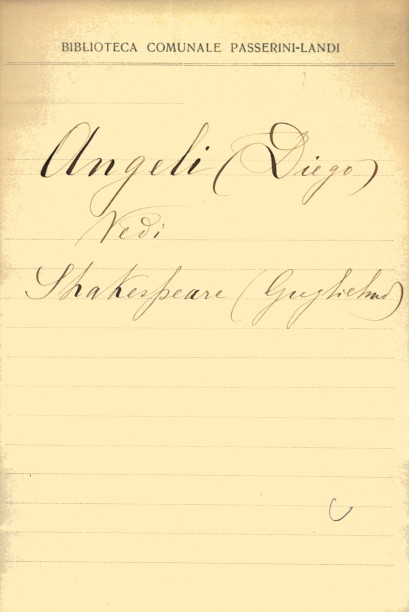 BIBLIOTECA COMUNALE PASSERINI-LANDI
Angeli (Diego)
Vedi
Shakespeare (Guglielmo)